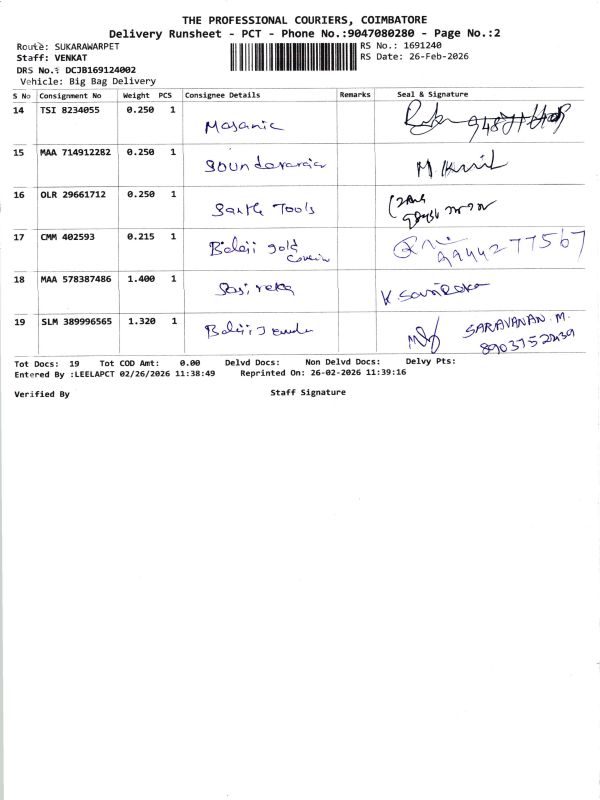 THE PROFESSIONAL COURIERS, COIMBATORE
Delivery Runsheet - PCT - Phone No.:9047080280 - Page No.:2
Route: SUKARAWARPET
RS No.: 1691240
Staff: VENKAT
RS Date: 26-Feb-2026
DRS No.: DCJB169124002
Vehicle: Big Bag Delivery
S No Consignment No Weight PCS Consignee Details Remarks Seal & Signature
14 TSI 8234055 0.250 1 Masanic
15 MAA 714912282 0.250 1 Soundararajan
16 OLR 29661712 0.250 1 Sakthi Tools
17 CMM 402593 0.215 1 Balaji gold 9444277567
18 MAA 578387486 1.400 1 Sasireka K Sasireka
19 SLM 389996565 1.320 1 Balaji SARAVANAN. M.
Tot Docs: 19 Tot COD Amt: 0.00 Delvd Docs: Non Delvd Docs: Delvy Pts:
Entered By :LEELAPCT 02/26/2026 11:38:49 Reprinted On: 26-02-2026 11:39:16
Verified By Staff Signature